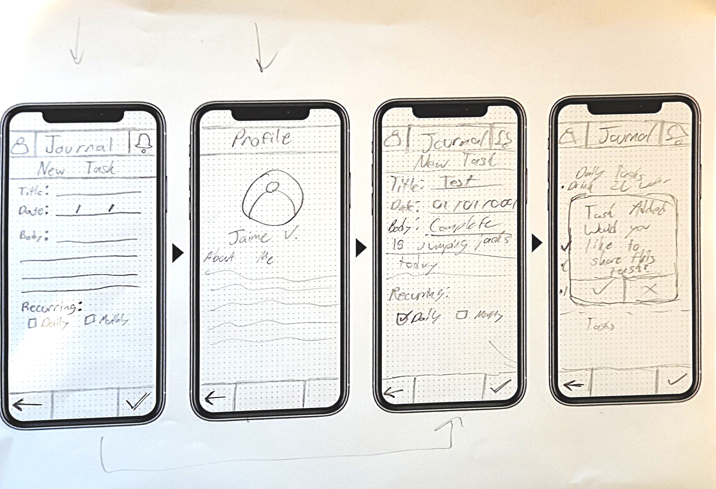 Journal
New Task
Title:
Date: / /
Body:
Recurring:
Daily Monthly
Profile
Jaime V.
About Me
Journal
New Task
Title: Test
Date: 01/01/2001
Body: Complete
15 Jumping jacks
today
Recurring:
Daily Monthly
Journal
Daily Tasks
Drink 2L water
Task Added
Would you
like to
share this
task?
Tasks